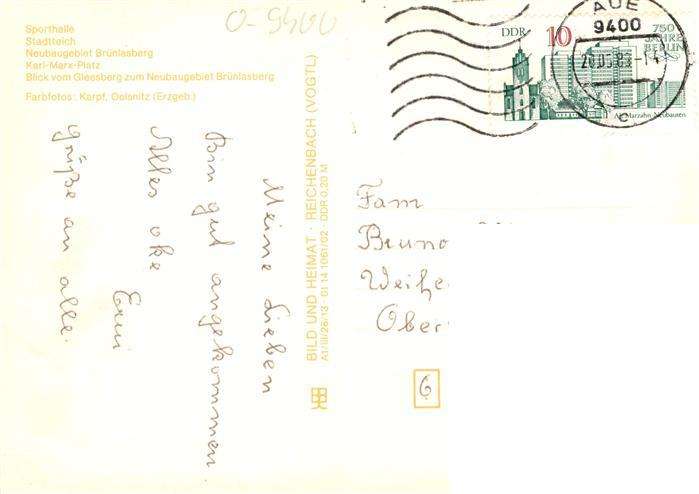 Sporthalle
Stadtteich
Neubaugebiet Brünlasberg
Karl-Marx-Platz
Blick vom Gleesberg zum Neubaugebiet Brünlasberg
Farbfotos: Karpf, Oelsnitz (Erzgeb.)
0-9400
Meine Lieben
Bin gut angekommen
Alles oke
Erni
Grüße an alle.
BILD UND HEIMAT · REICHENBACH (VOGTL)
A1/III/26/13 · 01 14 1061/02 · DDR 0,20 M
DDR 10
750 JAHRE BERLIN
Alt Marzahn, Neubauten
AUE
9400
c
Fam
Bruno
Weihe
Ober
6